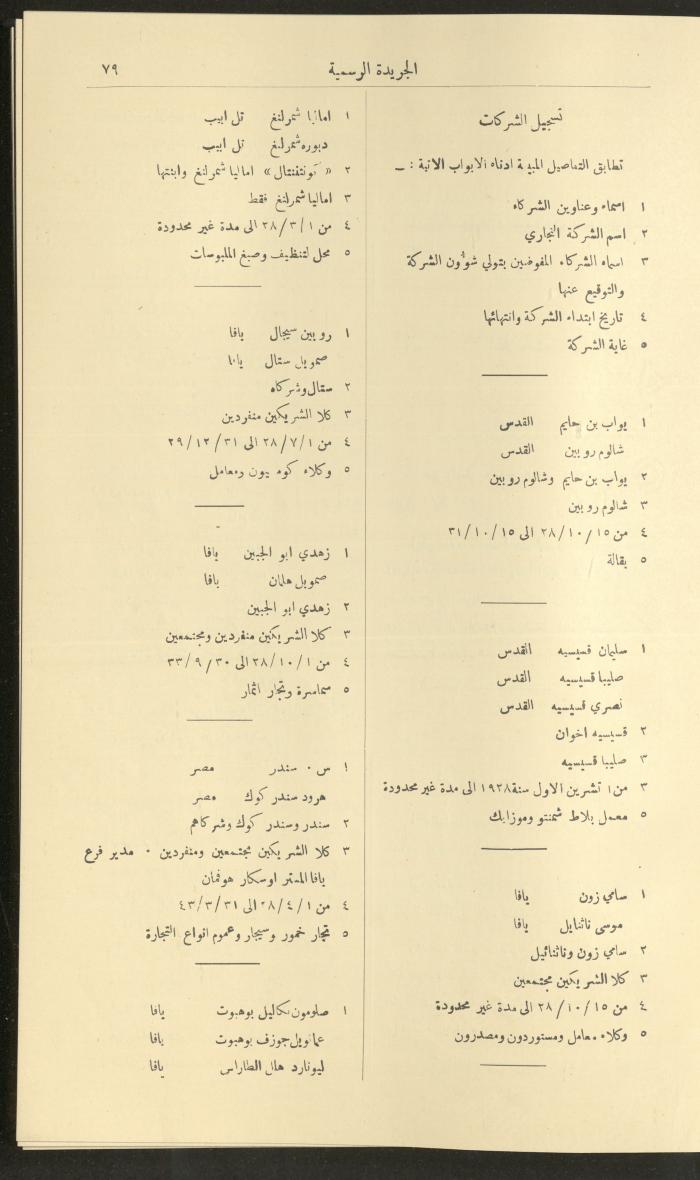 الجريدة الرسمية
٧٩
تسجيل الشركات
تطابق التفاصيل المبينة ادناه الابواب الاتية : ــ
١ اسماء وعناوين الشركاء
٢ اسم الشركة التجاري
٣ اسماء الشركاء المفوضين بتولي شؤون الشركة
والتوقيع عنها
٤ تاريخ ابتداء الشركة وانتهائها
٥ غاية الشركة
١ يواب بن حايم القدس
شالوم روبين القدس
٢ يواب بن حايم وشالوم روبين
٣ شالوم روبين
٤ من ٢٨/١٠/١٥ الى ٣١/١٠/١٥
٥ بقالة
١ سليمان قسيسيه القدس
صليبا قسيسيه القدس
نصري قسيسيه القدس
٢ قسيسيه اخوان
٣ صليبا قسيسيه
٣ من ١ تشرين الاول سنة ١٩٢٨ الى مدة غير محدودة
٥ معمل بلاط شمنتو وموزايك
١ سامي زون يافا
موسى ناثنايل يافا
٢ سامي زون وناثنائيل
٣ كلا الشريكين مجتمعين
٤ من ٢٨/١٠/١٥ الى مدة غير محدودة
٥ وكلاء معامل ومستوردون ومصدرون
١ اماليا شمرلنغ تل ابيب
دبوره شمرلنغ تل ابيب
٢ «كونتننتال» اماليا شمرلنغ وابنتها
٣ اماليا شمرلنغ فقط
٤ من ٢٨/٣/١ الى مدة غير محدودة
٥ محل لتنظيف وصبغ الملبوسات
١ روبين سيجال يافا
صمويل ستال يافا
٢ ستال وشركاه
٣ كلا الشريكين منفردين
٤ من ٢٨/٧/١ الى ٢٩/١٢/٣١
٥ وكلاء كومسيون ومعامل
١ زهدي ابو الجبين يافا
صمويل هلمان يافا
٢ زهدي ابو الجبين
٣ كلا الشريكين منفردين ومجتمعين
٤ من ٢٨/١٠/١ الى ٣٣/٩/٣٠
٥ سماسرة وتجار اثمار
١ س٠ سندر مصر
هرود سندر كوك مصر
٢ سندر وسندر كوك وشركاهم
٣ كلا الشريكين مجتمعين ومنفردين ٠ مدير فرع
يافا المستر اوسكار هوفمان
٤ من ٢٨/٤/١ الى ٤٣/٣/٣١
٥ تجار خمور وسيجار وعموم انواع التجارة
١ صلومون بوهبوت يافا
عمانويل جوزف بوهبوت يافا
ليونارد هال الطاراس يافا